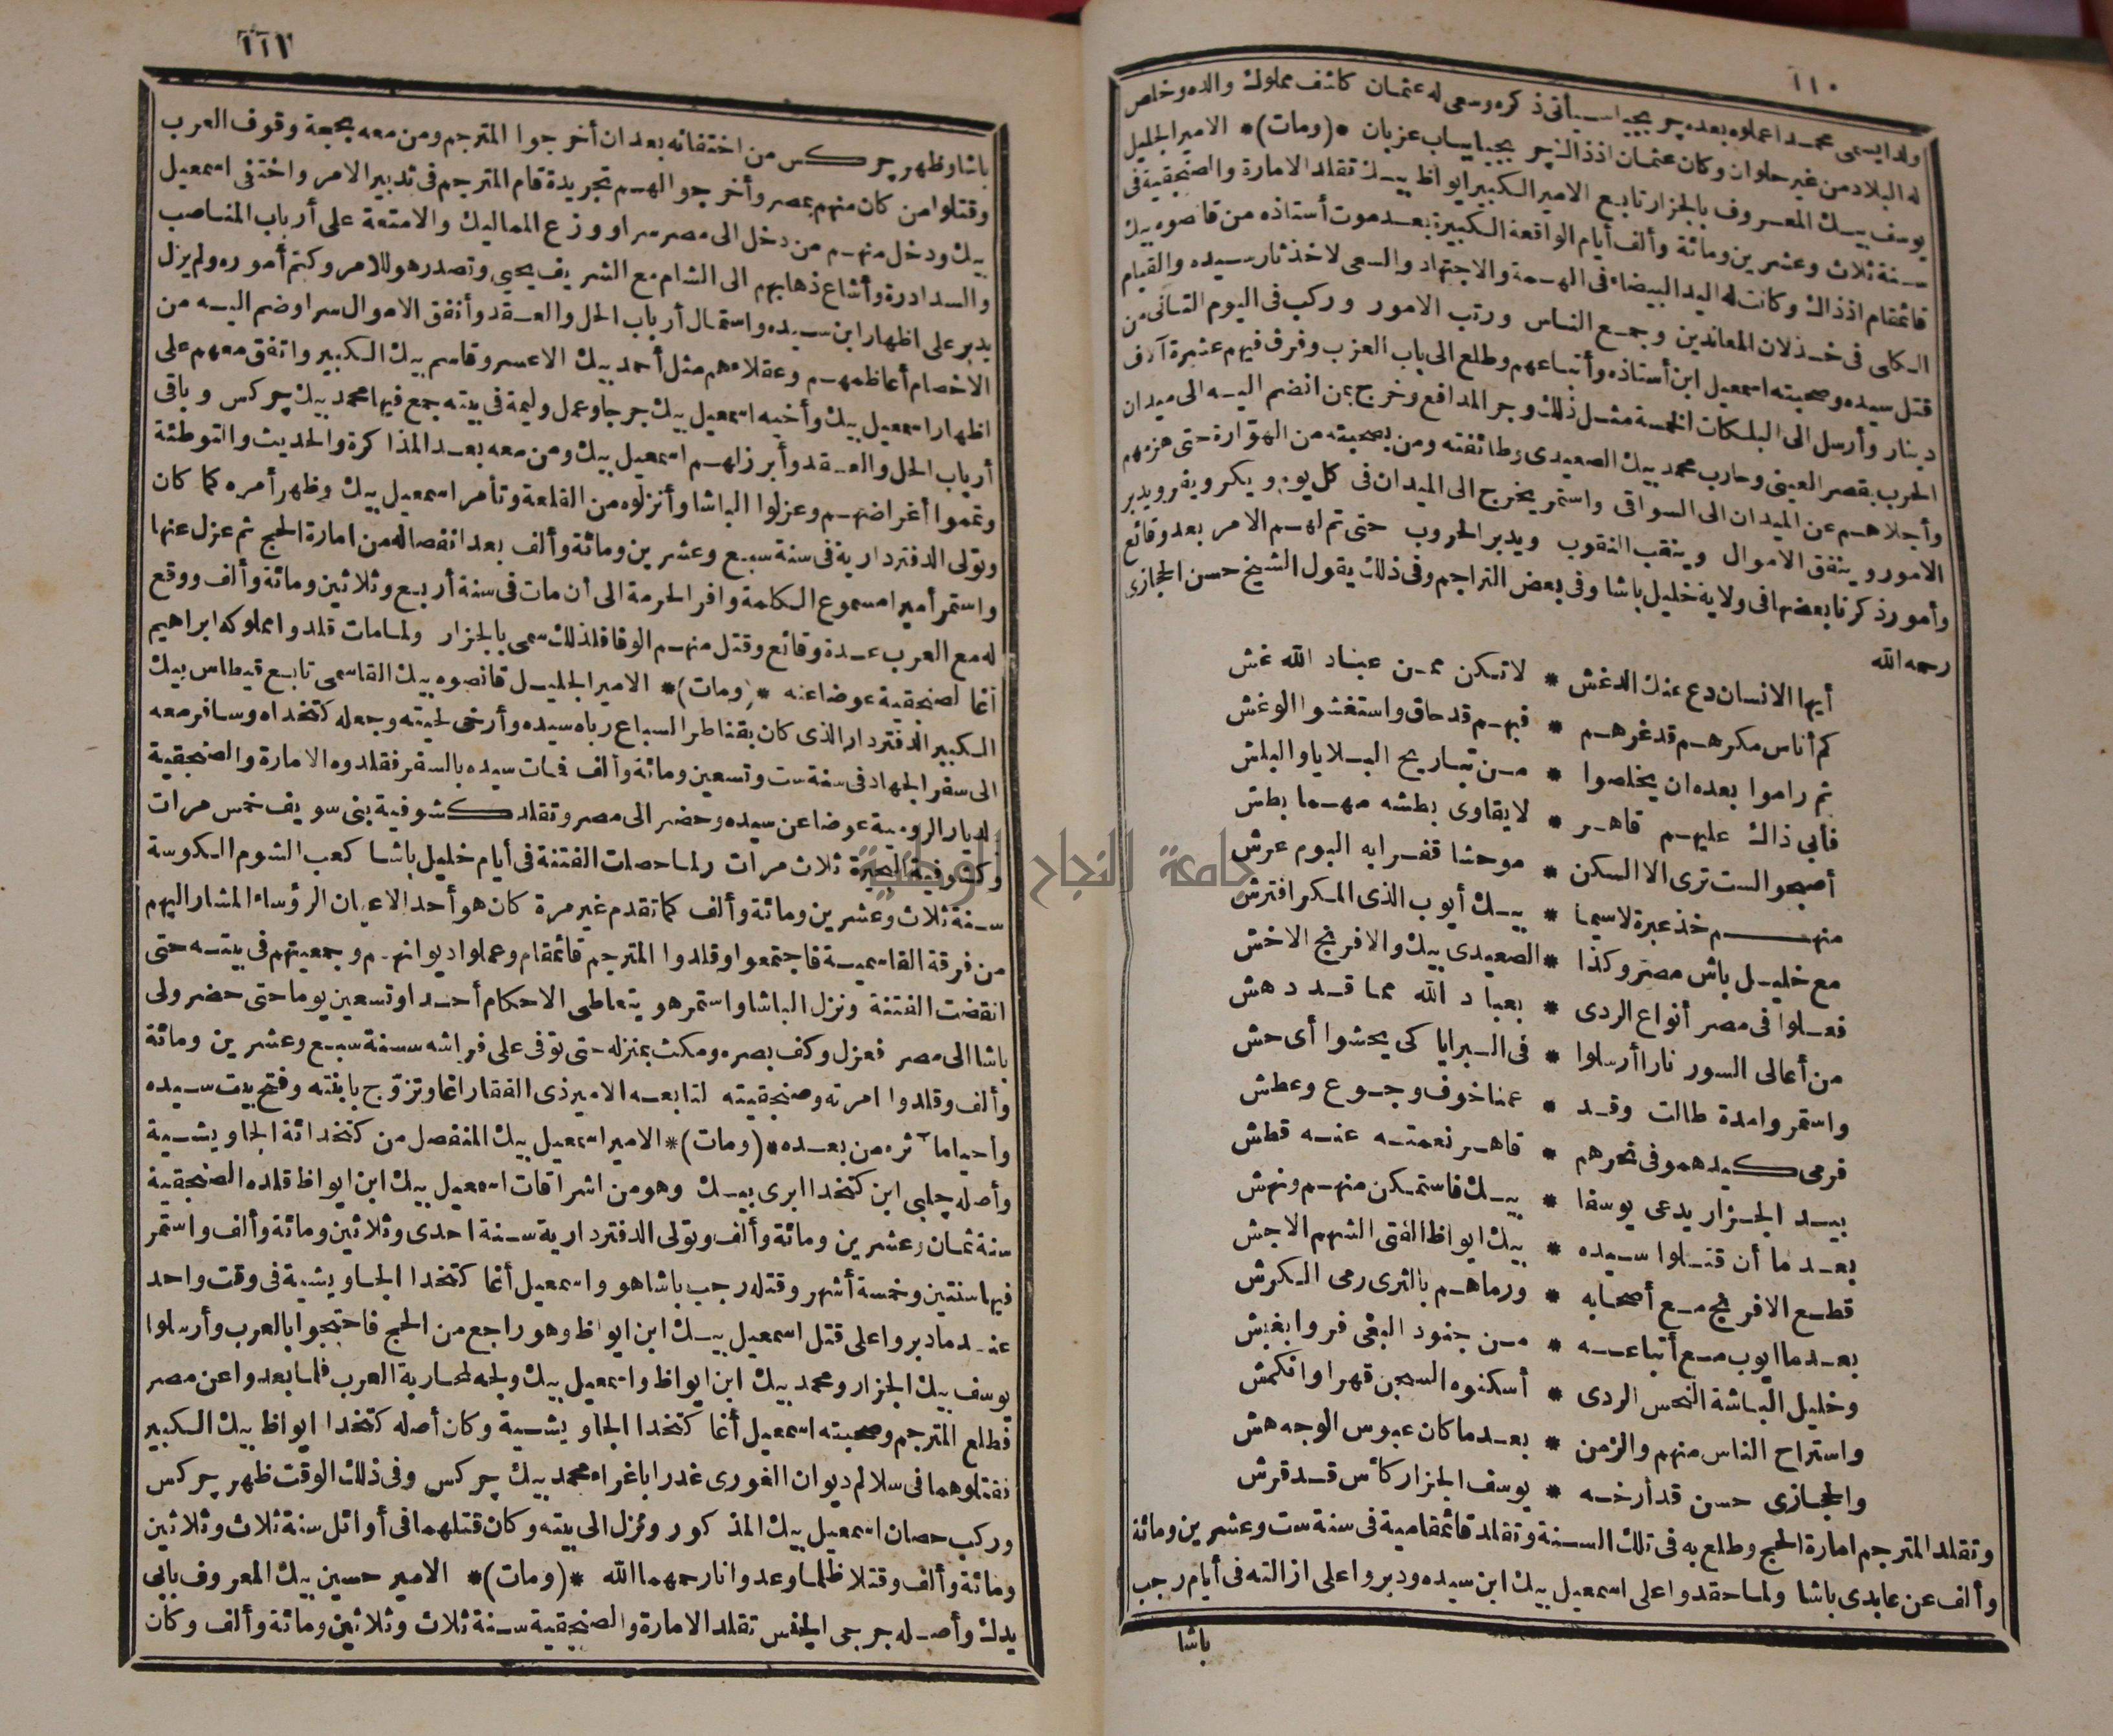 ١١٠
ولدا يسمى محمدا عملوه بعده جربجيا سيأتي ذكره وسعى له عثمان كاشف مملوك والده وخلص
له البلاد من غير حلوان وكان عثمان اذ ذاك جربجيا بباب عزبان *(ومات)* الامير الجليل
يوسف بيك المعروف بالجزار تابع الامير الكبير ايواظ بيك تقلد الامارة والصنجقية في
سنة ثلاث وعشرين ومائة وألف أيام الواقعة الكبيرة بعد موت أستاذه من قانصوه بيك
قائمقام اذ ذاك وكانت له اليد البيضاء في الهمة والاجتهاد والسعى لاخذ ثار سيده والقيام
الكلى في خذلان المعاندين وجمع الناس ورتب الامور وركب في اليوم الثاني من
قتل سيده وصحبته اسمعيل ابن أستاذه وأتباعهم وطلع الى باب العزب وفرق فيهم عشرة آلاف
دينار وأرسل الى البلكات الخمسة مثل ذلك وجر المدافع وخرج بمن انضم اليه الى ميدان
الحرب بقصر العينى وحارب محمد بيك الصعيدى وطائفته ومن بصحبته من الهوّارة حتى هزمهم
وأجلاهم عن الميدان الى السواقى واستمر يخرج الى الميدان في كل يوم ويكر ويفر ويدبر
الامور وينفق الاموال وينقب النقوب ويدبر الحروب حتى تم لهم الامر بعد وقائع
وأمور ذكرنا بعضها في ولاية خليل باشا وفي بعض التراجم وفي ذلك يقول الشيخ حسن الحجازى
رحمه الله
أيها الانسان دع عنك الدغش * لا تكن ممن عباد الله غش
كم أناس مكرهم قد غرهم * فبهم قد حاق واستغشوا الوغش
ثم راموا بعده ان يخلصوا * من تباريح البلايا والبلش
فأبى ذاك عليهم قاهر * لا يقاوى بطشه مهما بطش
أصبحوا لست ترى الا السكن * موحشا قفرا به البوم عرش
منهم خذ عبرة لاسيما * بيك أيوب الذى المكر افترش
مع خليل باش مصر وكذا * الصعيدى بيك والافرنج الاخش
فعلوا في مصر أنواع الردى * بعباد الله مما قد دهش
من أعالى السور نارا أرسلوا * في البرايا كى يحشوا أى حش
واستمروا مدة طالت وقد * عمنا خوف وجوع وعطش
فرمى كيدهمو في نحرهم * قاهر نعمته عنه قطش
بيد الجزار يدعى يوسفا * بيك فاستمكن منهم ونهش
بعد ما أن قتلوا سيده * بيك ايواظ الفتى الشهم الاجش
قطع الافرنج مع أصحابه * ورماهم بالثرى رمى الكرش
بعد ما ايوب مع أتباعه * من جنود البغى فروا بغبش
وخليل الباشة النحس الردى * أسكنوه السجن قهرا وانكمش
واستراح الناس منهم والزمن * بعد ما كان عبوس الوجه هش
والحجازى حسن قد أرخه * يوسف الجزار كأس قد قرش
وتقلد المترجم امارة الحج وطلع به في تلك السنة وتقلد قائمقامية في سنة ست وعشرين ومائة
وألف عن عابدى باشا ولما حقدوا على اسمعيل بيك ابن سيده ودبروا على ازالته في أيام رجب
باشا
١١١
باشا وظهر جركس من اختفائه بعد ان أخرجوا المترجم ومن معه بحجة وقوف العرب
وقتلوا من كان منهم بمصر وأخرجوا لهم تجريدة قام المترجم في تدبير الامر واختفى اسمعيل
بيك ودخل منهم من دخل الى مصر سرا ووزع المماليك والامتعة على أرباب المناصب
والسدادرة وأشاع ذهابهم الى الشام مع الشريف يحيى وتصدر هو للامر وكتم أموره ولم يزل
يدبر على اظهار ابن سيده واستمال أرباب الحل والعقد وأنفق الاموال سرا وضم اليه من
الاخصام أعاظمهم وعقلاءهم مثل أحمد بيك الاعسر وقاسم بيك الكبير واتفق معهم على
اظهار اسمعيل بيك وأخيه اسمعيل بيك جرجا وعمل وليمة في بيته جمع فيها محمد بيك جركس وباقى
أرباب الحل والعقد وأبرز لهم اسمعيل بيك ومن معه بعد المذاكرة والحديث والتوطئة
وتمموا أغراضهم وعزلوا الباشا وأنزلوه من القلعة وتأمر اسمعيل بيك وظهر أمره كما كان
وتولى الدفتردارية في سنة سبع وعشرين ومائة وألف بعد انفصاله من امارة الحج ثم عزل عنها
واستمر أميرا مسموع الكلمة وافر الحرمة الى أن مات في سنة أربع وثلاثين ومائة وألف ووقع
له مع العرب عدة وقائع وقتل منهم الوفا فلذلك سمى بالجزار ولما مات قلدوا مملوكه ابراهيم
أغا الصنجقية عوضا عنه *(ومات)* الامير الجليل قانصوه بيك القاسمى تابع قيطاس بيك
الكبير الدفتردار الذى كان بقناطر السباع رباه سيده وأرخى لحيته وجعله كتخداه وسافر معه
الى سفر الجهاد في سنة ست وتسعين ومائة وألف فمات سيده بالسفر فقلدوه الامارة والصنجقية
بالديار الرومية عوضا عن سيده وحضر الى مصر وتقلد كشوفية بنى سويف خمس مرات
وكشوفية البحيرة ثلاث مرات ولما حصلت الفتنة في أيام خليل باشا كعب الشوم الكوسة
سنة ثلاث وعشرين ومائة وألف كما تقدم غير مرة كان هو أحد الاعيان الرؤساء المشار اليهم
من فرقة القاسمية فاجتمعوا وقلدوا المترجم قائمقام وعملوا ديوانهم وجمعيتهم في بيته حتى
انقضت الفتنة ونزل الباشا واستمر هو يتعاطى الاحكام أحدا وتسعين يوما حتى حضر ولى
باشا الى مصر فعزل وكف بصره ومكث بمنزله حتى توفى على فراشه سنة سبع وعشرين ومائة
وألف وقلدوا امرته وصنجقيته لتابعه الامير ذى الفقار اغا وتزوّج بابنته وفتح بيت سيده
وأحيا مآثره من بعده *(ومات)* الامير اسمعيل بيك المنفصل من كتخدائة الجاويشية
وأصله چلبى ابن كتخدا ابرى بيك وهو من اشراقات اسمعيل بيك ابن ايواظ قلده الصنجقية
سنة ثمان وعشرين ومائة وألف وتولى الدفتردارية سنة احدى وثلاثين ومائة وألف واستمر
فيها سنتين وخمسة أشهر وقتله رجب باشا هو واسمعيل أغا كتخدا الجاويشية في وقت واحد
عندما دبروا على قتل اسمعيل بيك ابن ايواظ وهو راجع من الحج فاحتجوا بالعرب وأرسلوا
يوسف بيك الجزار ومحمد بيك ابن ايواظ واسمعيل بيك ولجه لمحاربة العرب فلما بعدوا عن مصر
فطلع المترجم وصحبته اسمعيل أغا كتخدا الجاويشية وكان أصله كتخدا ايواظ بيك الكبير
فقتلوهما في سلالم ديوان الغورى غدرا باغراء محمد بيك جركس وفي ذلك الوقت ظهر جركس
وركب حصان اسمعيل بيك المذكور ونزل الى بيته وكان قتلهما في أوائل سنة ثلاث وثلاثين
ومائة وألف وقتلا ظلما وعدوانا رحمهما الله *(ومات)* الامير حسين بيك المعروف بابى
يدك وأصله جرجى الجنس تقلد الامارة والصنجقية سنة ثلاث وثلاثين ومائة وألف وكان
جامعة النجاح الوطنية